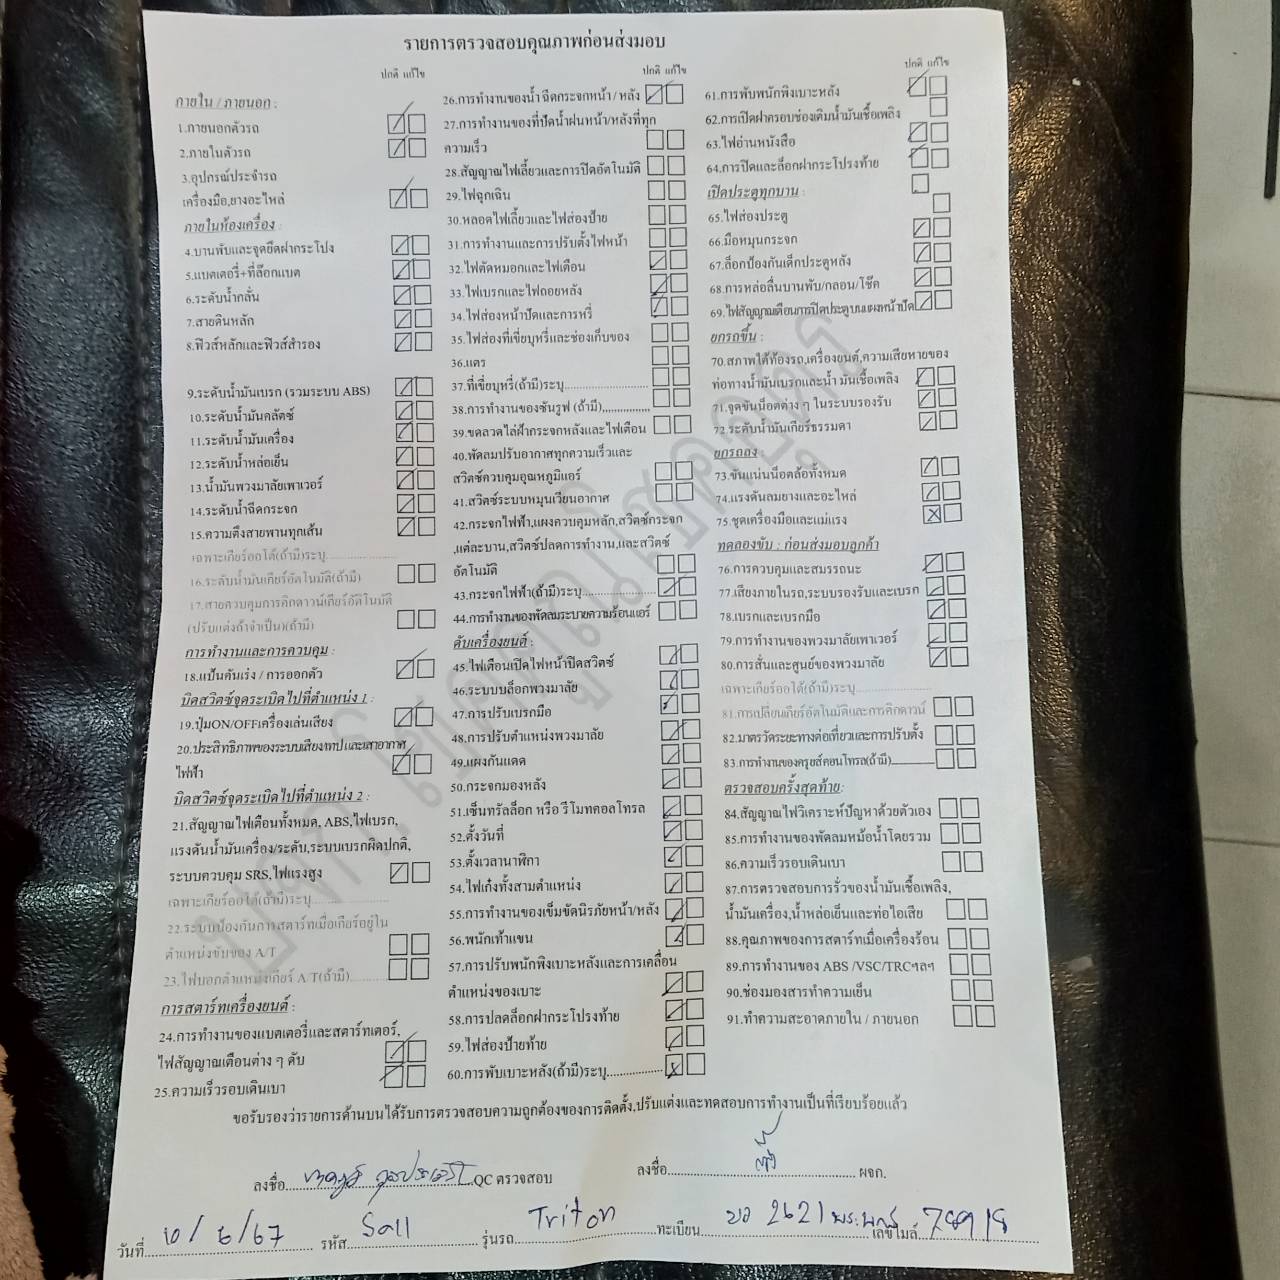 รายการตรวจสอบคุณภาพก่อนส่งมอบ
ปกติ แก้ไข
ภายใน / ภายนอก :
1.ภายนอกตัวรถ
2.ภายในตัวรถ
3.อุปกรณ์ประจำรถ
เครื่องมือ,ยางอะไหล่
ภายในห้องเครื่อง :
4.บานพับและจุดยึดฝากระโปง
5.แบตเตอรี่+ที่ล๊อกแบต
6.ระดับน้ำกลั่น
7.สายดินหลัก
8.ฟิวส์หลักและฟิวส์สำรอง
9.ระดับน้ำมันเบรก (รวมระบบ ABS)
10.ระดับน้ำมันคลัตซ์
11.ระดับน้ำมันเครื่อง
12.ระดับน้ำหล่อเย็น
13.น้ำมันพวงมาลัยเพาเวอร์
14.ระดับน้ำฉีดกระจก
15.ความตึงสายพานทุกเส้น
เฉพาะเกียร์ออโต้(ถ้ามี)ระบุ....................
16.ระดับน้ำมันเกียร์อัตโนมัติ(ถ้ามี)
17.สายควบคุมการคิกดาวน์เกียร์อัติโนมัติ
(ปรับแต่งถ้าจำเป็น)(ถ้ามี)
การทำงานและการควบคุม :
18.แป้นคันเร่ง / การออกตัว
บิดสวิตซ์จุดระเบิดไปที่ตำแหน่ง 1 :
19.ปุ่มON/OFFเครื่องเล่นเสียง
20.ประสิทธิภาพของระบบเสียงเทปและเสาอากาศ
ไฟฟ้า
บิดสวิตซ์จุดระเบิดไปที่ตำแหน่ง 2 :
21.สัญญาณไฟเตือนทั้งหมด, ABS,ไฟเบรก,
แรงดันน้ำมันเครื่อง/ระดับ,ระบบเบรกผิดปกติ,
ระบบควบคุม SRS,ไฟแรงสูง
เฉพาะเกียร์ออโต้(ถ้ามี)ระบุ....................
22.ระบบป้องกันการสตาร์ทเมื่อเกียร์อยู่ใน
ตำแหน่งขับของ A/T
23.ไฟบอกตำแหน่งเกียร์ A/T(ถ้ามี)..........
การสตาร์ทเครื่องยนต์ :
24.การทำงานของแบตเตอรี่และสตาร์ทเตอร์,
ไฟสัญญาณเตือนต่าง ๆ ดับ
25.ความเร็วรอบเดินเบา
ปกติ แก้ไข
26.การทำงานของน้ำ ฉีดกระจกหน้า / หลัง
27.การทำงานของที่ปัดน้ำฝนหน้า/หลังที่ทุก
ความเร็ว
28.สัญญาณไฟเลี้ยวและการปิดอัตโนมัติ
29.ไฟฉุกเฉิน
30.หลอดไฟเลี้ยวและไฟส่องป้าย
31.การทำงานและการปรับตั้งไฟหน้า
32.ไฟตัดหมอกและไฟเตือน
33.ไฟเบรกและไฟถอยหลัง
34.ไฟส่องหน้าปัดและการหรี่
35.ไฟส่องที่เขี่ยบุหรี่และช่องเก็บของ
36.แตร
37.ที่เขี่ยบุหรี่(ถ้ามี)ระบุ....................
38.การทำงานของซันรูฟ (ถ้ามี)..............
39.ขดลวดไล่ฝ้ากระจกหลังและไฟเตือน
40.พัดลมปรับอากาศทุกความเร็วและ
สวิตซ์ควบคุมอุณหภูมิแอร์
41.สวิตซ์ระบบหมุนเวียนอากาศ
42.กระจกไฟฟ้า,แผงควบคุมหลัก,สวิตซ์กระจก
,แต่ละบาน,สวิตซ์ปลดการทำงาน,และสวิตซ์
อัตโนมัติ
43.กระจกไฟฟ้า(ถ้ามี)ระบุ....................
44.การทำงานของพัดลมระบายความร้อนแอร์
ดับเครื่องยนต์ :
45.ไฟเตือนเปิดไฟหน้าปิดสวิตซ์
46.ระบบบล็อกพวงมาลัย
47.การปรับเบรกมือ
48.การปรับตำแหน่งพวงมาลัย
49.แผงกันแดด
50.กระจกมองหลัง
51.เซ็นทรัลล็อก หรือ รีโมทคอลโทรล
52.ตั้งวันที่
53.ตั้งเวลานาฬิกา
54.ไฟเก๋งทั้งสามตำแหน่ง
55.การทำงานของเข็มขัดนิรภัยหน้า/หลัง
56.พนักเท้าแขน
57.การปรับพนักพิงเบาะหลังและการเคลื่อน
ตำแหน่งของเบาะ
58.การปลดล็อกฝากระโปรงท้าย
59.ไฟส่องป้ายท้าย
60.การพับเบาะหลัง(ถ้ามี)ระบุ..............
ปกติ แก้ไข
61.การพับพนักพิงเบาะหลัง
62.การเปิดฝาครอบช่องเติมน้ำมันเชื้อเพลิง
63.ไฟอ่านหนังสือ
64.การปิดและล็อกฝากระโปรงท้าย
เปิดประตูทุกบาน :
65.ไฟส่องประตู
66.มือหมุนกระจก
67.ล็อกป้องกันเด็กประตูหลัง
68.การหล่อลื่นบานพับ/กลอน/โช๊ค
69.ไฟสัญญาณเตือนการปิดประตูบนแผงหน้าปัด
ยกรถขึ้น :
70.สภาพใต้ท้องรถ,เครื่องยนต์,ความเสียหายของ
ท่อทางน้ำมันเบรกและน้ำ มันเชื้อเพลิง
71.จุดขันน็อตต่าง ๆ ในระบบรองรับ
72.ระดับน้ำมันเกียร์ธรรมดา
ยกรถลง :
73.ขันแน่นน็อตล้อทั้งหมด
74.แรงดันลมยางและอะไหล่
75.ชุดเครื่องมือและแม่แรง
ทดลองขับ : ก่อนส่งมอบลูกค้า
76.การควบคุมและสมรรถนะ
77.เสียงภายในรถ,ระบบรองรับและเบรก
78.เบรกและเบรกมือ
79.การทำงานของพวงมาลัยเพาเวอร์
80.การสั่นและศูนย์ของพวงมาลัย
เฉพาะเกียร์ออโต้(ถ้ามี)ระบุ....................
81.การเปลี่ยนเกียร์อัตโนมัติและการคิกดาวน์
82.มาตรวัดระยะทางต่อเที่ยวและการปรับตั้ง
83.การทำงานของครูยส์คอนโทรล(ถ้ามี)..........
ตรวจสอบครั้งสุดท้าย:
84.สัญญาณไฟวิเคราะห์ปัญหาด้วยตัวเอง
85.การทำงานของพัดลมหม้อน้ำโดยรวม
86.ความเร็วรอบเดินเบา
87.การตรวจสอบการรั่วของน้ำมันเชื้อเพลิง,
น้ำมันเครื่อง,น้ำหล่อเย็นและท่อไอเสีย
88.คุณภาพของการสตาร์ทเมื่อเครื่องร้อน
89.การทำงานของ ABS /VSC/TRCฯลฯ
90.ช่องมองสารทำความเย็น
91.ทำความสะอาดภายใน / ภายนอก
ขอรับรองว่ารายการด้านบนได้รับการตรวจสอบความถูกต้องของการติดตั้ง,ปรับแต่งและทดสอบการทำงานเป็นที่เรียบร้อยแล้ว
ลงชื่อ....................QC ตรวจสอบ ลงชื่อ....................ผจก.
วันที่ 10/6/67 รหัส Sall รุ่นรถ Triton ทะเบียน บอ 2621 เลขไมล์ 78918